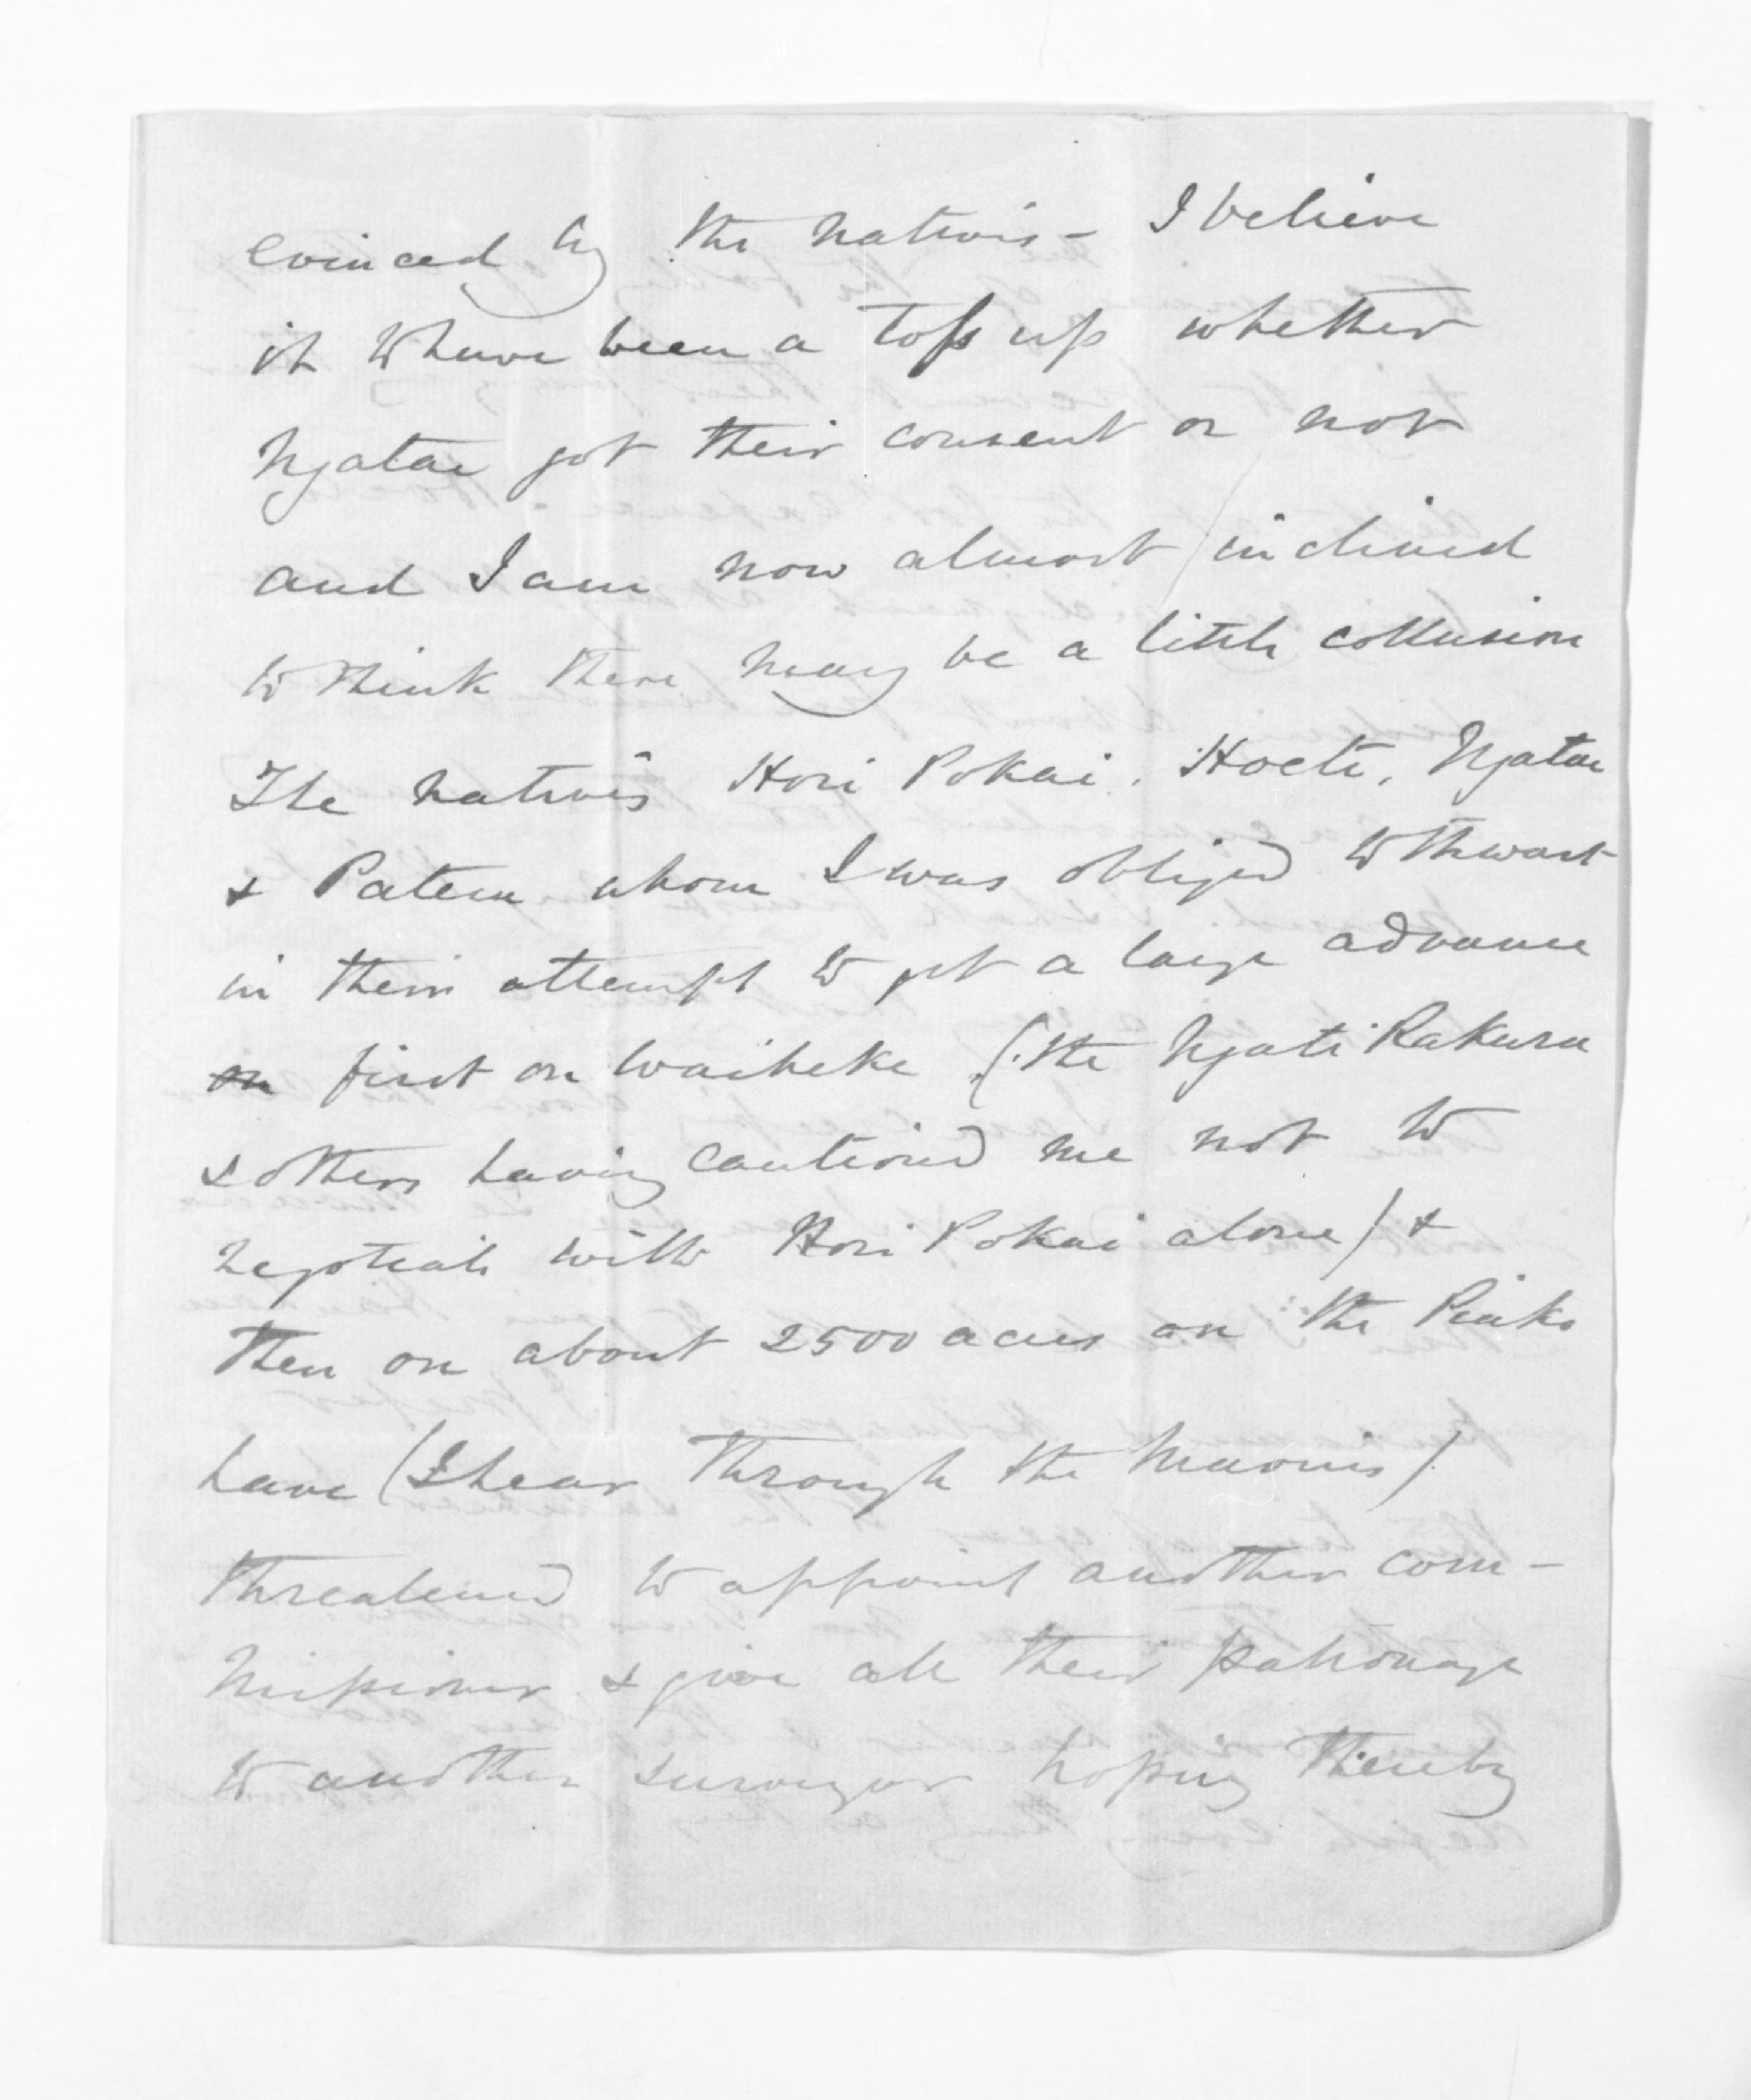 evinced by the natives - I believe
it to have been a toss up whether
Ngatae got their consent or not
and I am now almost inclined
to think there may be a little collusion
The natives Hori Pokai, Hoete, Ngatae
& Patene whom I was obliged to thwart
in their attempt to get a large advance
on first on Waiheke (the Ngati Rakura
& others having cautioned me not to
negotiate with Hori Pokai alone) &
then on about 2500 acres on the Piako
have (I hear through the Maoris)
threatened to appoint another com-
missioner & give all their patronage
to another surveyor hoping thereby